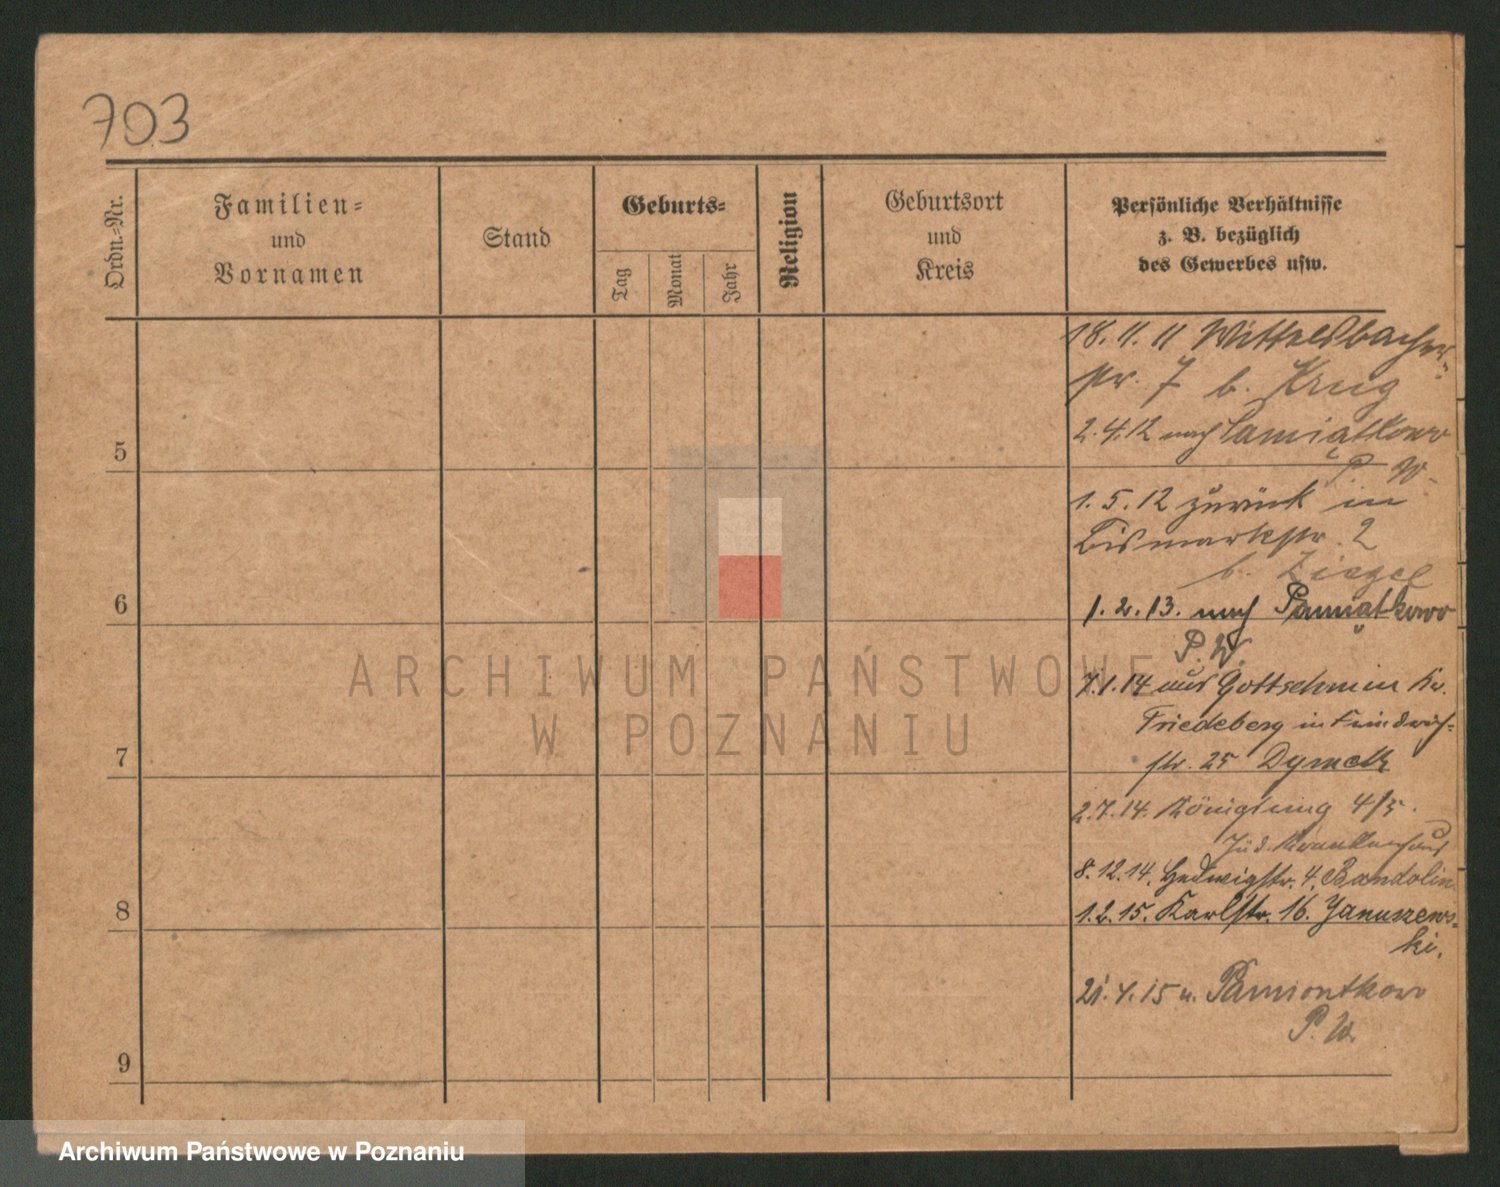 703
Ordn.-Nr.
Familien-
und
Vornamen
Stand
Geburts-
Tag
Monat
Jahr
Religion
Geburtsort
und
Kreis
Persönliche Verhältnisse
z. B. bezüglich
des Gewerbes usw.
18. 11. 11 Wittelsbacher-
str. 7 b. Krug
2. 4. 12 nach Pamiątkowo
P. W.
1. 5. 12 zurück in
Bismarckstr. 2
b. Ziegel
1. 2. 13. nach Pamiątkowo
P. W.
7. 1. 14 aus Gottschimm Kr.
Friedeberg in
str. 25 Dymek
2. 7. 14. Königsring 4/5.
Jüd. Krankenhaus
8. 12. 14. Hedwigstr. 4. Bandolin
1. 2. 15. Karlstr. 16. Januszews-
ki.
21. 4. 15 n. Pamiontkowo
P. W.
5
6
7
8
9
ARCHIWUM PAŃSTWOWE
W POZNANIU
Archiwum Państwowe w Poznaniu